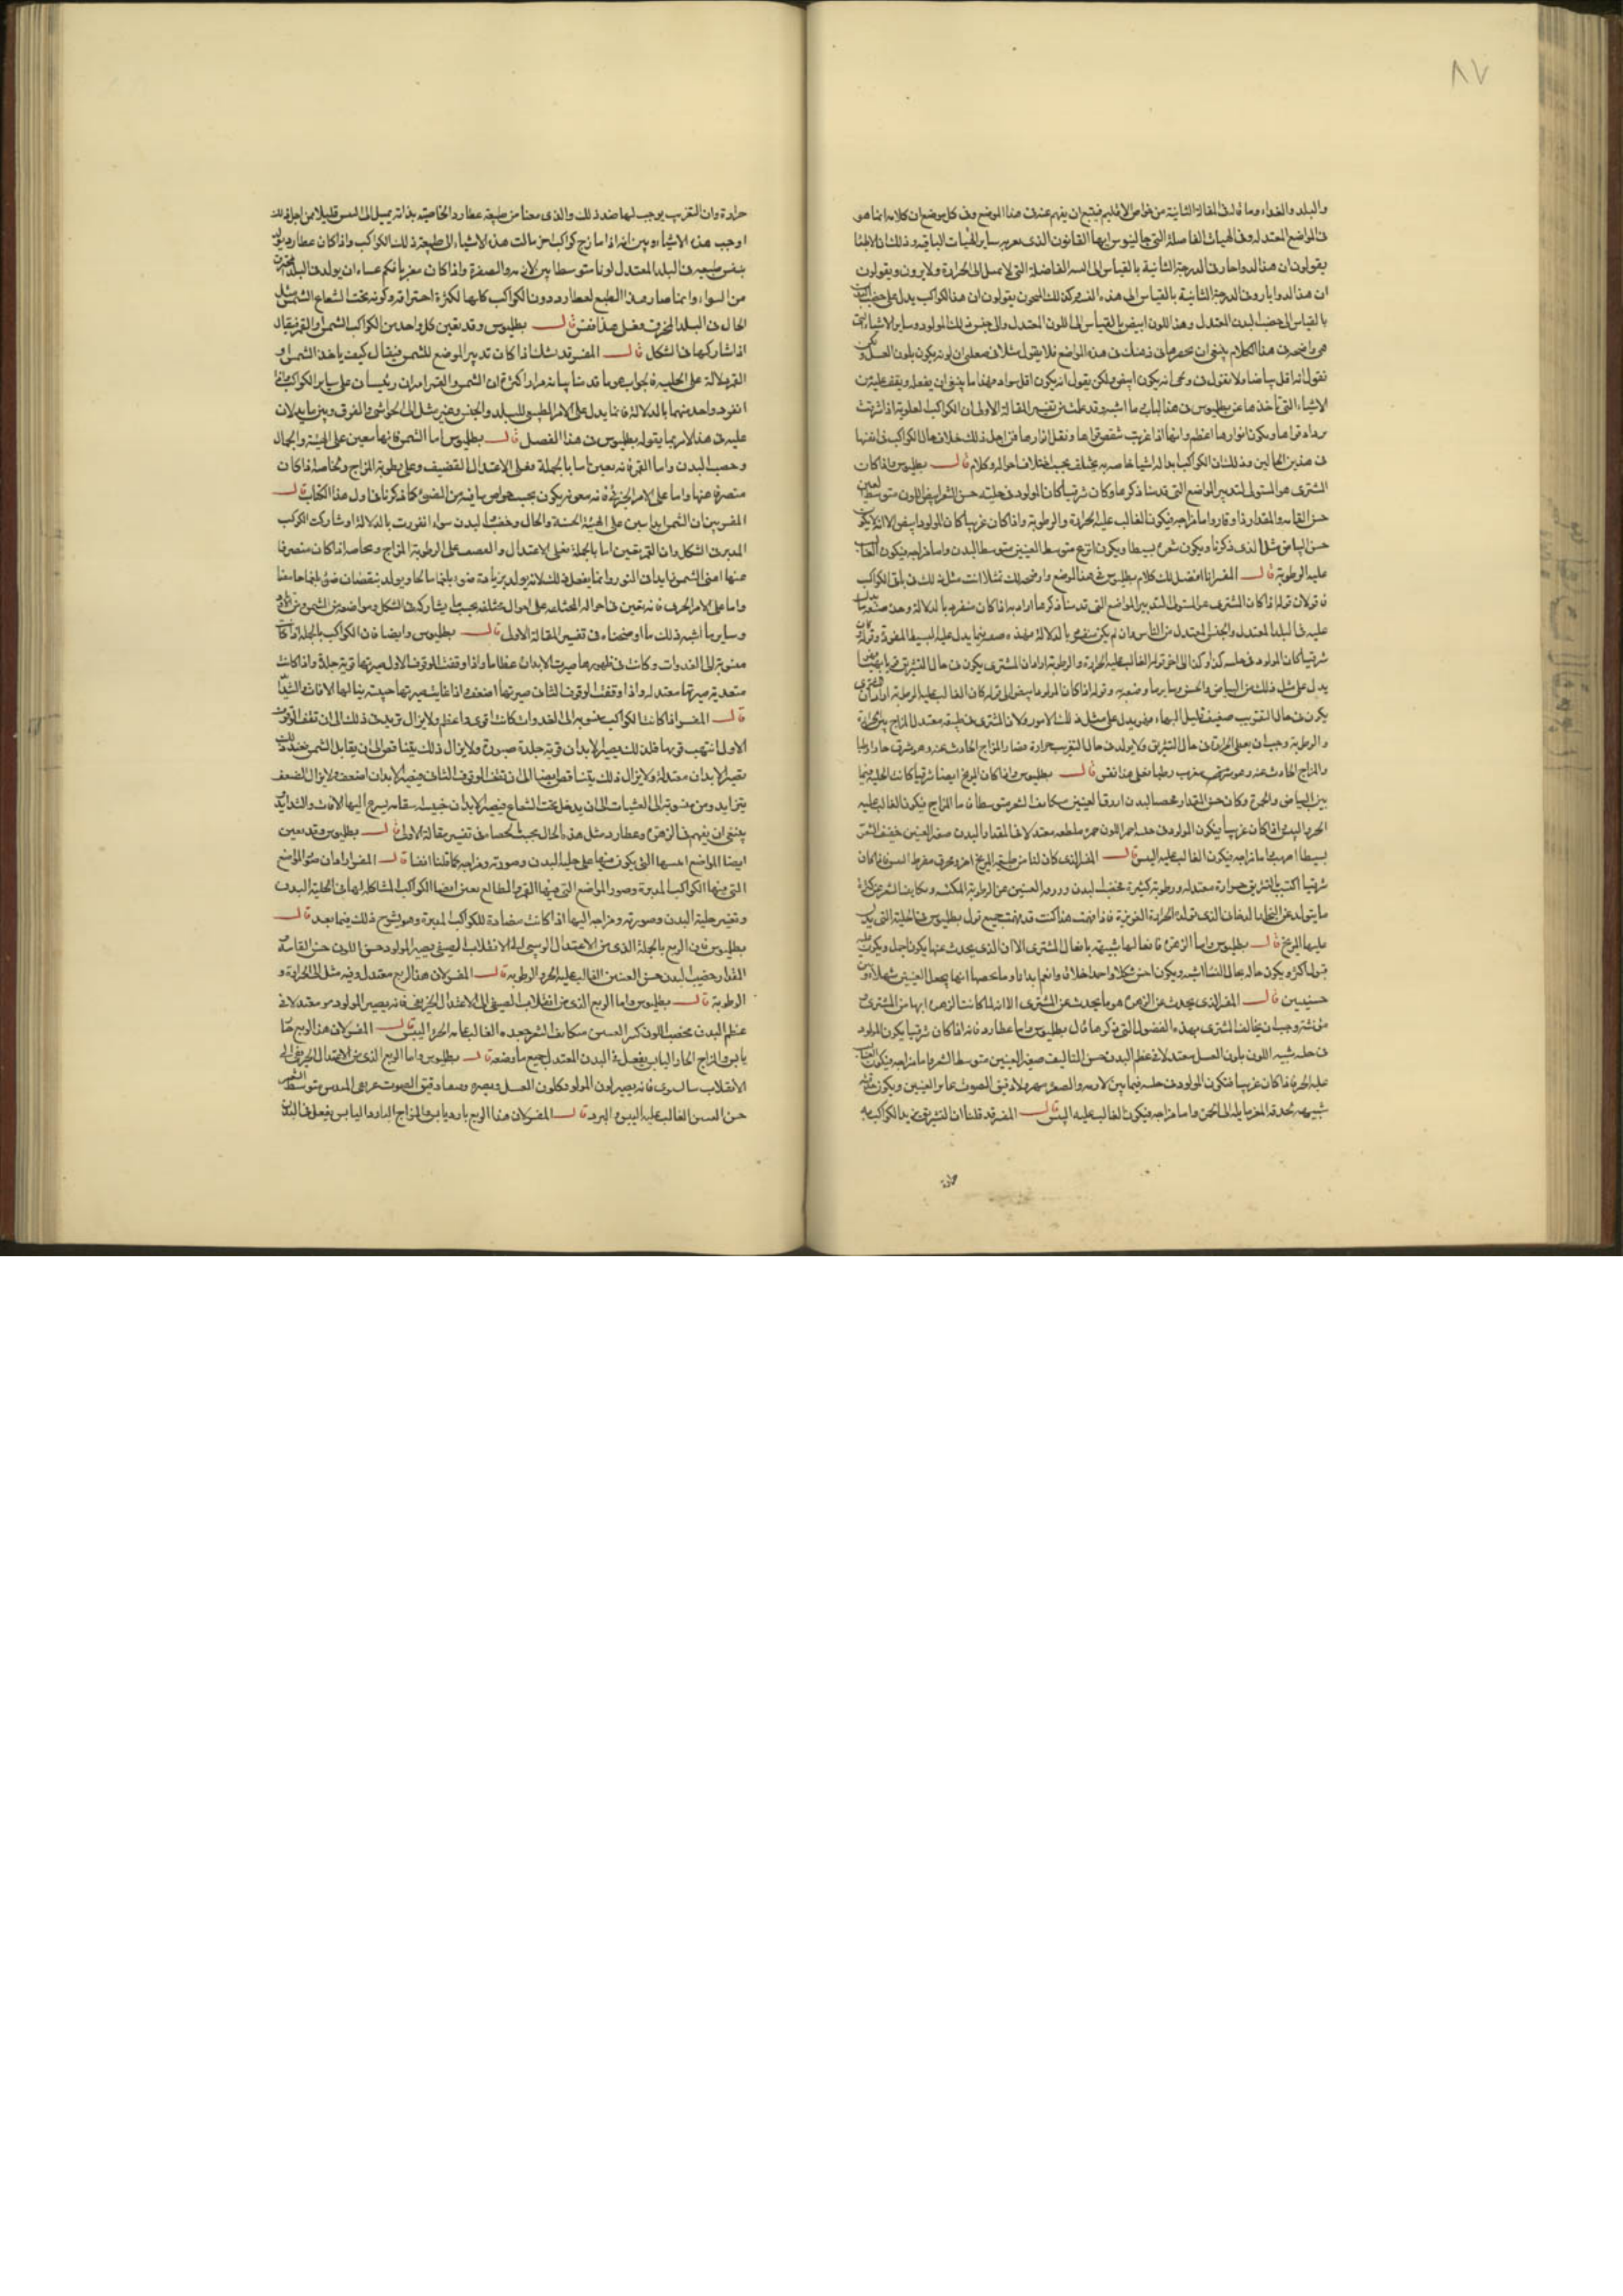 ٨٧
والبلد والغذاء وما قال في المقالة الثانية من خواص الاقاليم فينبغي ان يفهم عنه في هذا الموضع وفي كل موضع ان كلامه انما هو
في المواضع المعتدله وفي الهيات الفاضلة التي جالينوس ايها القانون الذي به ساير الهيات الباقيه وذلك ان الاطبا
يقولون ان هذا الدوا حار في الدرجة الثانية بالقياس الى الفاضلة التي لا تميل الى الحرارة ولا برد ويقولون
ان هذا الدوا بارد في الدرجة الثانية بالقياس الى هذه كذلك المنجمون يقولون ان هذا الكواكب يدل على خصب البدن
بالقياس الى خصب البدن المعتدل وهذا اللون ابيض بالقياس الى اللون المعتدل والى ذلك المولود وساير الاشياء التي
هي في هذا الكلام ينبغي ان في ذهنك في هذه المواضع فلا يقول مثلا في ان لونه يكون بلون العسل
نقول انه اقل بياضا ولا نقول في انه يكون ابيض ولكن يقول انه يكون اقل سوادا ما ينبغي ان يفعل ويقف عليه من
الاشياء التي ناخذها عن بطليموس في هذا الباب وما اشبهه وقد علمت من تفسير المقالة الاولى ان الكواكب العلوية اذا شرقت
قواها ويكون انوارها اعظم وانها اذا غربت قواها وتقل انوارها فمن اجل ذلك خلاف حال الكواكب في
في هذين الحالين وذلك ان الكواكب لها اشيا خاصه به يختلف بحسب اختلاف احواله وكلامه قال بطليموس واذا كان
المشتري هو المستولي لتدبير المواضع التي قدمنا ذكرها وكان شرقيا كان المولود في حليته حسن الشعر ابيض اللون متوسط العينين
حسن القامه والمقدار ذا وقار واما مزاجه فيكون الغالب عليه الحرارة والرطوبة واذا كان غربيا كان المولود ابيض الا انه لا يكون
حسن البياض مثل الذي ذكرنا ويكون شعره بسيطا ويكون انزع متوسط العينين متوسط البدن واما مزاجه فيكون الغالب
عليه الرطوبة قال المفسر انا افصل لك كلام بطليموس في هذا الموضع واوضحه لك مثلا انت مثل ذلك في باقي الكواكب
فاقول ان قوله اذا كان المشتري هو المستولي لتدبير المواضع التي قدمنا ذكرها اراد به اذا كان منفردا بالدلالة وحده
عليه في البلد المعتدل والجنس المعتدل من الناس وان لم يكن بالدلالة فيما يدل عليه البسيط المفرد وقوله
شرقيا كان المولود في حليته كذا وكذا الى اخر قوله الغالب عليه الحرارة والرطوبة اراد ان المشتري يكون في حال التشريق
يدل على مثل ذلك من البياض والحسن وساير ما وقوله اذا كان غربيا كان المولود ابيض الى قوله كان الغالب عليه الرطوبة اراد ان المشتري
يكون في حال التغريب ضعيف قليل البهاء فهو يدل على مثل ذلك الامور ولان المشتري في طبيعته معتدل المزاج
والرطوبة وجب ان يعطي الحرارة في حال التشريق ولا يولد في حال التغريب حرارة فصار المزاج الحادث عنه وهو مشرق حارا رطبا
والمزاج الحادث عنه وهو مغرب رطبا فعلى هذا فقس قال بطليموس واذا كان المريخ ايضا شرقيا كانت الحلية فيما
بين البياض والحمرة وكان حسن المقدار مخصب البدن ازرق العينين متكاثف الشعر متوسطا في ما المزاج فيكون الغالب عليه
الحر واليبس اذا كان غربيا فيكون المولود في حليته احمر اللون معتدلا في المقدار والبدن صغير العينين خفيف الشعر
بسيطا واما مزاجه فيكون الغالب عليه اليبس قال المفسر الذي كان لنا من طبيعة المريخ انه محرق مفرط اليبس فاذا كان
شرقيا اكتسب بالتشريق حرارة معتدله ورطوبة كثيرة فخصب البدن وزرقة العينين عن الرطوبة وتكاثف الشعر عن كثرة
ما يتولد عن البخار الدخاني الذي تولده الحرارة الغريزية فاذا فهمت هذا كنت قد فهمت جميع قول بطليموس في الحلية التي يدل
عليها المريخ قال بطليموس واما الزهرة فافعالها شبيهه بافعال المشتري الا ان الذي يحدث عنها يكون اجمل ويكون عليه
قبولا اكثر ويكون حاله بحال النسا اشبه ويكون احسن شكلا واحد اخلاقا وانعم ابدانا وما يخصها انها تجعل العينين شهلاوين
حسنيين قال المفسر الذي يحدث عن الزهرة هو ما يحدث عن المشتري الا انه لما كانت الزهرة ابها من المشتري
مؤنثه وجب ان يخالف المشتري بهذه الفصول التي ذكرها قال بطليموس واما عطارد فانه اذا كان شرقيا يكون المولود
في حليته شبيه اللون بلون العسل معتدلا في عظم البدن حسن التاليف صغير العينين متوسط الشعر واما مزاجه فيكون الغالب
عليه الحر فاذا كان غربيا فيكون المولود في حليته فيما بين الادمه والصفره مهزولا دقيق الصوت غاير العينين ويكون
شبيهه بحدقه المعز مايله الى واما مزاجه فيكون الغالب عليه اليبس قال المفسر قد قلنا ان التشريق يزيد الكواكب
حرارة
حرارة وان التغريب يوجب لها ضد ذلك والذي معنا من طبيعة عطارد الخاصيه بذاته يميل الى اليبس قليلا فمن اجل ذلك
اوجب هذه الاشياء وبين انه اذا مازج كواكب اخر مالت هذه الاشياء الى طبيعة ذلك الكواكب واذا كان عطارد يولد
بنفس طبيعته في البلد المعتدل لونا متوسطا بين الادمه والصفرة واذا كان مغربا فكم عساه ان يولد في البلد المحترق
من السواد وانما صار هذا الطبع لعطارد دون الكواكب كلها لكثرة احتراقه وكونه تحت شعاع الشمس مثل
الحال في البلد المحترق فعلى هذا فقس قال بطليموس وقد يعين كل واحد من الكواكب الشمس والقمر
اذا شاركها في الشكل قال المفسر قد نشك اذا كان تدبير الموضع للشمس فيقال كيف ياخذ الشمس او
القمر الدلالة على الحلية فجوابه هو ما قدمنا بيانه مرارا كثيرة ان الشمس والقمر امران رئيسان على ساير الكواكب فمتى
انفرد واحد منهما بالدلالة فانما يدل على الامر الطبيعي للبلد والجنس وغيره مثل الى الحواشي والفرق وبين ما يدلان
عليه في هذا الامر بما يقوله بطليموس في هذا الفصل قال بطليموس اما الشمس فانها معين على الهيئة والجمال
وخصب البدن واما القمر فانه يعين اما بالجملة فعلى الاعتدال القضيف وعلى رطوبة المزاج وبخاصة اذا كان
منصرفا عنها واما على الامر الجزئي فانه معونته يكون بحسب خواص ما فيه من الضوء كما ذكرنا في اول هذا الكتاب قال
المفسر بين ان الشمس ابدا تعين على الهيئة الحسنة والحال وخصب البدن سواء انفردت بالدلالة او شاركت الكوكب
المدبر في الشكل وان القمر يعين اما بالجملة فعلى الاعتدال والضعف على الرطوبة المزاج وبخاصة اذا كان منصرفا
عنها اعني الشمس زايدا في النور وانما يفعل ذلك لانه يولد بزيادة ضوءه بلغما حارا ويولد بنقصان ضوئه بلغما حامضا
واما على الامر الجزئي فانه يعين في احواله المختلفه على احوال مختلفه بحسب ما يشاركه في الشكل ومواضعه من الشمس
وساير ما اشبه ذلك ما اوضحناه في تفسير المقالة الاولى قال بطليموس وايضا فان الكواكب بالجملة اذا كانت
منسوبة الى الغدوات وكانت في ظهورها صيرت الابدان عظاما واذا وقفت الوقوف الاول صيرتها قوية جلدة واذا كانت
متعدية صيرتها معتدله واذا وقفت الوقوف الثاني صيرتها اضعف واذا غابت صيرتها خبيثه ينالها الافات والشدايد
قال المفسر اذا كانت الكواكب منسوبه الى الغدوات كانت اقوى واعظم ولا يزال تزيد في ذلك الى ان تقف الوقوف
الاول انتهت قوتها فلذلك يصير الابدان قوية جلدة صبورة ولا يزال ذلك يتناقص الى ان يقابل الشمس عند ذلك
يصير الابدان معتدلة ولا يزال ذلك يتناقص ايضا الى ان تقف الوقوف الثاني فيصير الابدان اضعف ولا يزال الضعف
يتزايد ومن منسوبه الى العشيات الى ان يدخل تحت الشعاع فيصير الابدان خبيثه سقامه يسرع اليها الافات والشدايد
ينبغي ان يفهم في الزهرة وعطارد مثل هذه الحال بحسب ما في تفسير مقالة الاولى قال بطليموس وقد يعين
ايضا المواضع انفسها التي يكون فيها على حلية البدن وصورته ومزاجه كما قلنا انفا قال المفسر اراد ان صور المواضع
التي فيها الكواكب المدبرة وصور المواضع التي فيها القمر والطالع يعين ايضا الكواكب المشاكله لها في الحلية البدن
وتغير حلية البدن وصورته ومزاجه اليها اذا كانت مضادة للكواكب المدبرة وهو يشرح ذلك فيما بعد قال
بطليموس فان الربع بالجملة الذي من الاعتدال الربيعي الى الانقلاب الصيفي يصير المولود حسن اللون حسن القامة
المقدار خصيب البدن حسن العينين الغالب عليه الحر والرطوبة قال المفسر لان هذا الربع معتدل وفيه ميل الى الحرارة و
الرطوبة قال بطليموس واما الربع الذي من انقلاب الصيفي الى الاعتدال الخريفي فانه يصير المولود معتدلا في
عظم البدن مخصب اللون كبير العينين متكاثف الشعر جعده والغالب عليه الحر واليبس قال المفسر لان هذا الربع حار
يابس والمزاج الحار اليابس يفعل في البدن المعتدل جميع ما وضعه قال بطليموس واما الربع الذي من الاعتدال الخريفي الى
الانقلاب الشتوي فانه يصير لون المولود كلون العسل ويصيره دقيق الصوت المدس متوسط الشعر
حسن العينين الغالب عليه اليبس والبرد قال المفسر لان هذا الربع بارد يابس والمزاج البارد اليابس يفعل في البدن